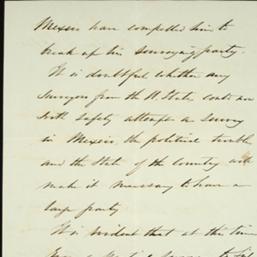 Mexico have compelled him to
break up his surveying party.
It is doubtful whether any
Surveyor from the U. States could now
with safety attempt a survey
in Mexico, the political trouble
and the State of the country will
make it necessary to have a
large party
It is evident that at the time